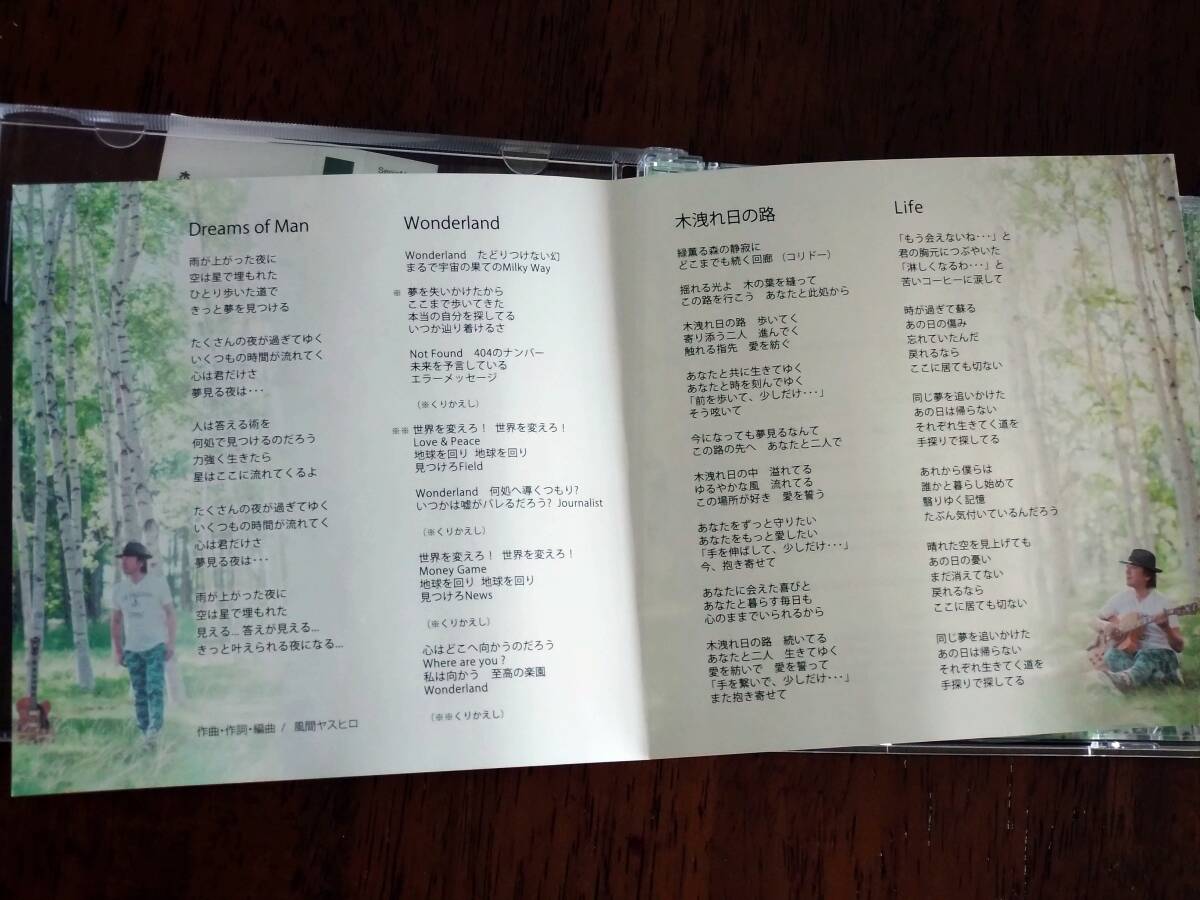 Dreams of Man
雨が上がった夜に
空は星で埋もれた
ひとり歩いた道で
きっと夢を見つける
たくさんの夜が過ぎてゆく
いくつもの時間が流れてく
心は君だけさ
夢見る夜は・・・
人は答える術を
何処で見つけるのだろう
力強く生きたら
星はここに流れてくるよ
たくさんの夜が過ぎてゆく
いくつもの時間が流れてく
心は君だけさ
夢見る夜は・・・
雨が上がった夜に
空は星で埋もれた
見える... 答えが見える...
きっと叶えられる夜になる...
作曲・作詞・編曲 / 風間ヤスヒロ
Wonderland
Wonderland たどりつけない幻
まるで宇宙の果てのMilky Way
※ 夢を失いかけたから
ここまで歩いてきた
本当の自分を探してる
いつか辿り着けるさ
Not Found 404のナンバー
未来を予言している
エラーメッセージ
(※くりかえし)
※※ 世界を変えろ! 世界を変えろ!
Love & Peace
地球を回り 地球を回り
見つけろField
Wonderland 何処へ導くつもり?
いつかは嘘がバレるだろう? Journalist
(※くりかえし)
世界を変えろ! 世界を変えろ!
Money Game
地球を回り 地球を回り
見つけろNews
(※くりかえし)
心はどこへ向かうのだろう
Where are you ?
私は向かう 至高の楽園
Wonderland
(※※くりかえし)
木洩れ日の路
緑薫る森の静寂に
どこまでも続く回廊 (コリドー)
揺れる光よ 木の葉を縫って
この路を行こう あなたと此処から
木洩れ日の路 歩いてく
寄り添う二人 進んでく
触れる指先 愛を紡ぐ
あなたと共に生きてゆく
あなたと時を刻んでゆく
「前を歩いて、少しだけ・・・」
そう呟いて
今になっても夢見るなんて
この路の先へ あなたと二人で
木洩れ日の中 溢れてる
ゆるやかな風 流れてる
この場所が好き 愛を誓う
あなたをずっと守りたい
あなたをもっと愛したい
「手を伸ばして、少しだけ・・・」
今、抱き寄せて
あなたに会えた喜びと
あなたと暮らす毎日も
心のままでいられるから
木洩れ日の路 続いてる
あなたと二人 生きてゆく
愛を紡いで 愛を誓って
「手を繋いで、少しだけ・・・」
また抱き寄せて
Life
「もう会えないね・・・」と
君の胸元につぶやいた
「淋しくなるわ・・・」と
苦いコーヒーに涙して
時が過ぎて蘇る
あの日の傷み
忘れていたんだ
戻れるなら
ここに居ても切ない
同じ夢を追いかけた
あの日は帰らない
それぞれ生きてく道を
手探りで探してる
あれから僕らは
誰かと暮らし始めて
翳りゆく記憶
たぶん気付いているんだろう
晴れた空を見上げても
あの日の憂い
まだ消えてない
戻れるなら
ここに居ても切ない
同じ夢を追いかけた
あの日は帰らない
それぞれ生きてく道を
手探りで探してる